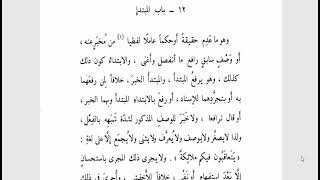 ١٢ - باب المبتدإ
وهو ما عَدِم حقيقةً أو حكماً عاملًا لفظيا (١) من مُخبَرٍ عنه ،
أو وَصْفٍ سابقٍ رافعٍ ما انفصل وأغنى ، والابتداءُ كون ذلك
كذلك ، وهو يرفع المبتدأَ ، والمبتدأُ الخبرَ ، خلافاً لمن رفعهما
به ، أو بتجرّدهما للإسناد ، أو رفعَ بالابتداءِ المبتدأَ وبهما الخبرَ ،
أو قال ترافعا ، ولا خبَرَ للوصف المذكور لشدة شبهه بالفعْل ،
ولذا لايصغّر ولايوصف ولايُعرَّف ولايثنى ولايُجمَع إلا على لغة :
« يتعاقبون فيكم ملائكةٌ » . ولا يجرى ذلك المجرى باستحسانٍ
إلّا بَعْدَ استفهام أو نَفْىٍ ، خلافاً للأخفش ، وأُجرِى فى ذلك